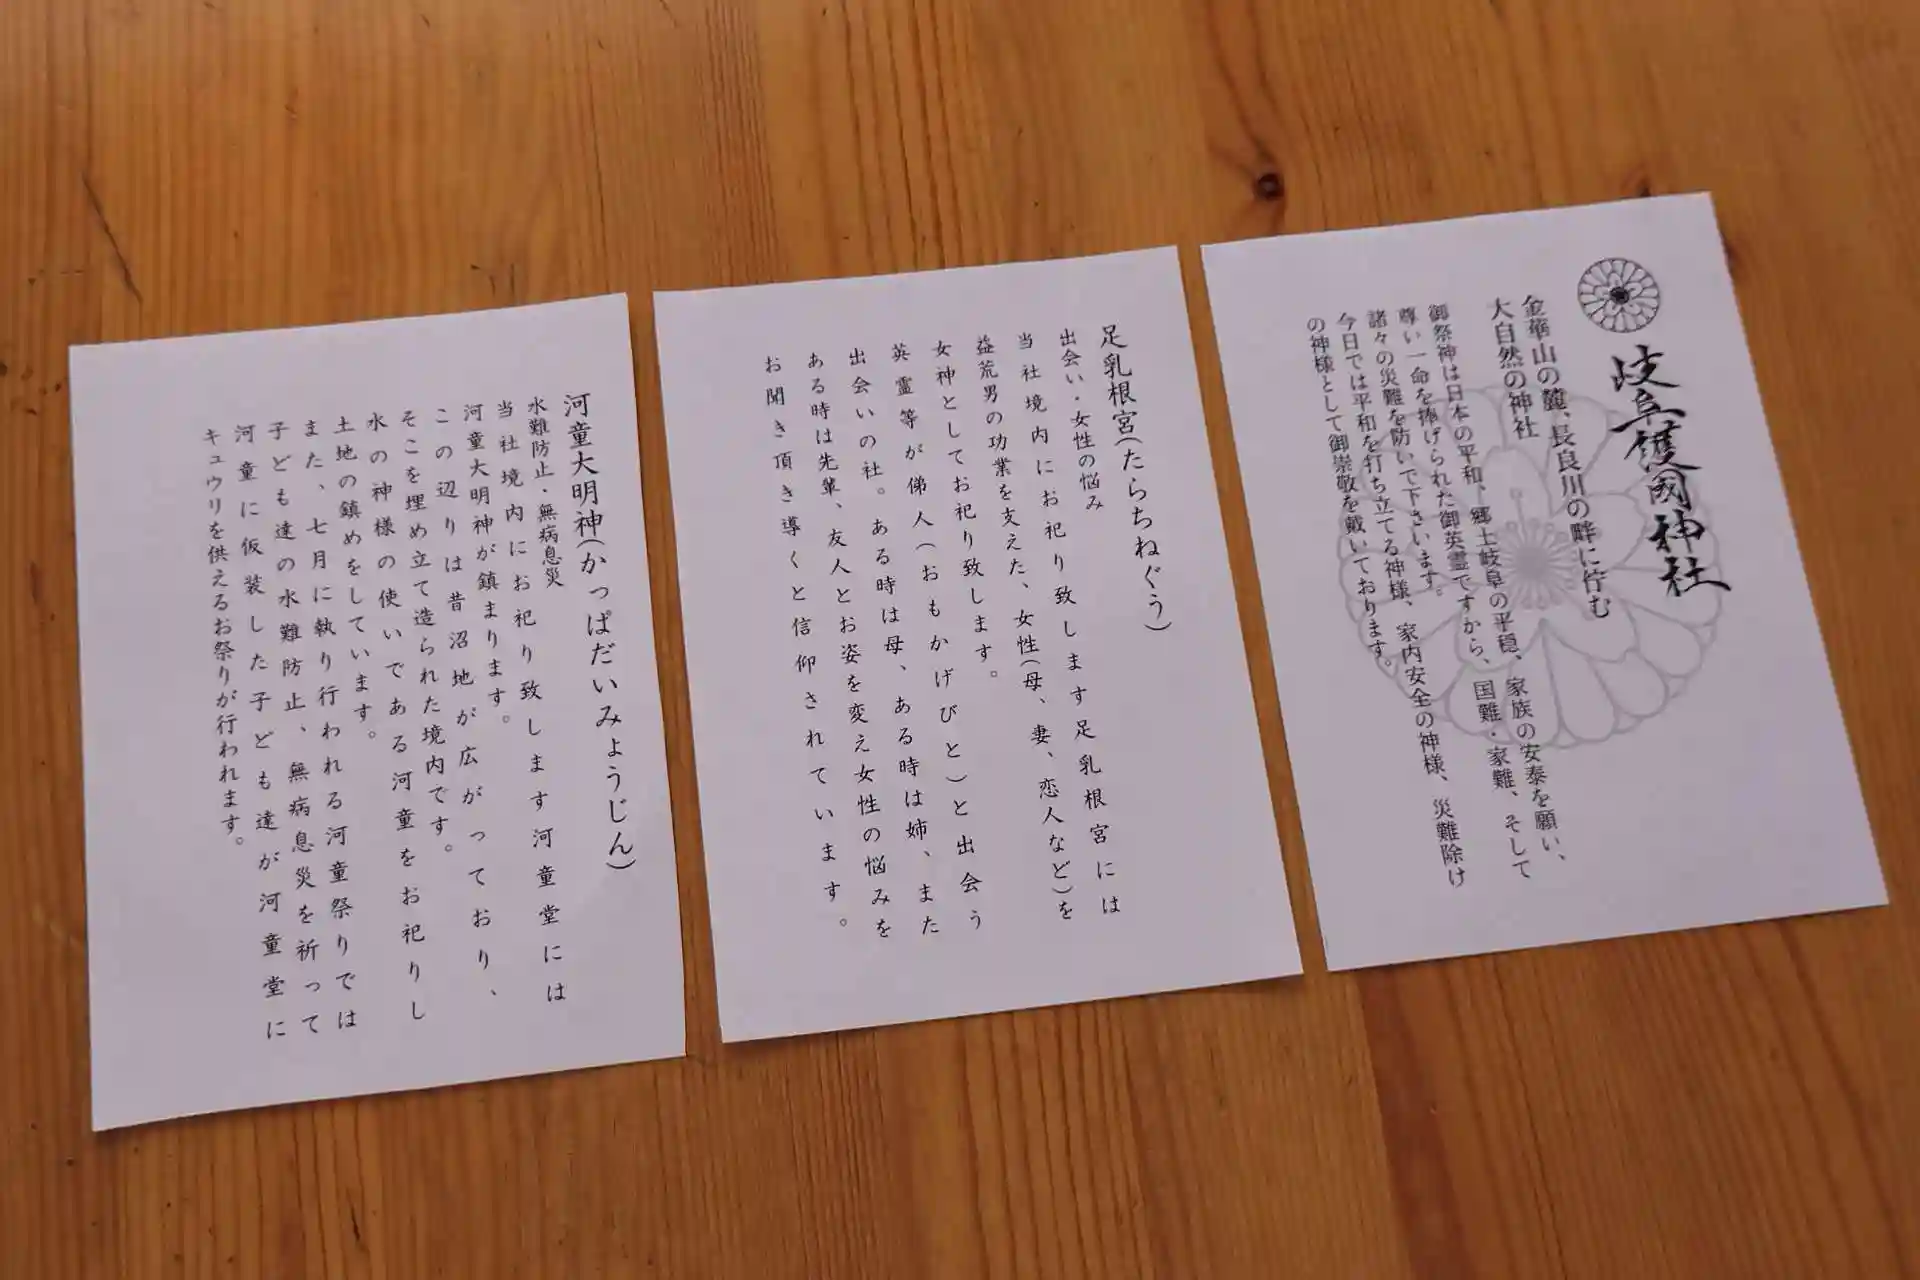 岐阜護國神社
金華山の麓、長良川の畔に佇む
大自然の神社
御祭神は日本の平和、郷土岐阜の平穏、家族の安泰を願い、
尊い一命を捧げられた御英霊ですから、国難・家難、そして
諸々の災難を防いで下さいます。
今日では平和を打ち立てる神様、家内安全の神様、災難除け
の神様として御崇敬を戴いております。
足乳根宮(たらちねぐう)
出会い・女性の悩み
当社境内にお祀り致します足乳根宮には
益荒男の功業を支えた、女性(母、妻、恋人など)を
女神としてお祀り致します。
英霊等が俤人(おもかげびと)と出会う
出会いの社。ある時は母、ある時は姉、また
ある時は先輩、友人とお姿を変え女性の悩みを
お聞き頂き導くと信仰されています。
河童大明神(かっぱだいみょうじん)
水難防止・無病息災
当社境内にお祀り致します河童堂には
河童大明神が鎮まります。
この辺りは昔沼地が広がっており、
そこを埋め立て造られた境内です。
水の神様の使いである河童をお祀りし
土地の鎮めをしています。
また、七月に執り行われる河童祭りでは
子ども達の水難防止、無病息災を祈って
河童に仮装した子ども達が河童堂に
キュウリを供えるお祭りが行われます。